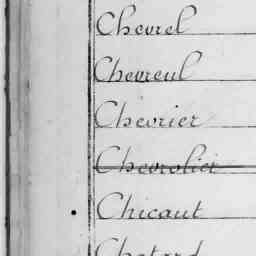 Chevrel
Chevreul
Chevrier
Chevrolier
Chicaut
Chotard